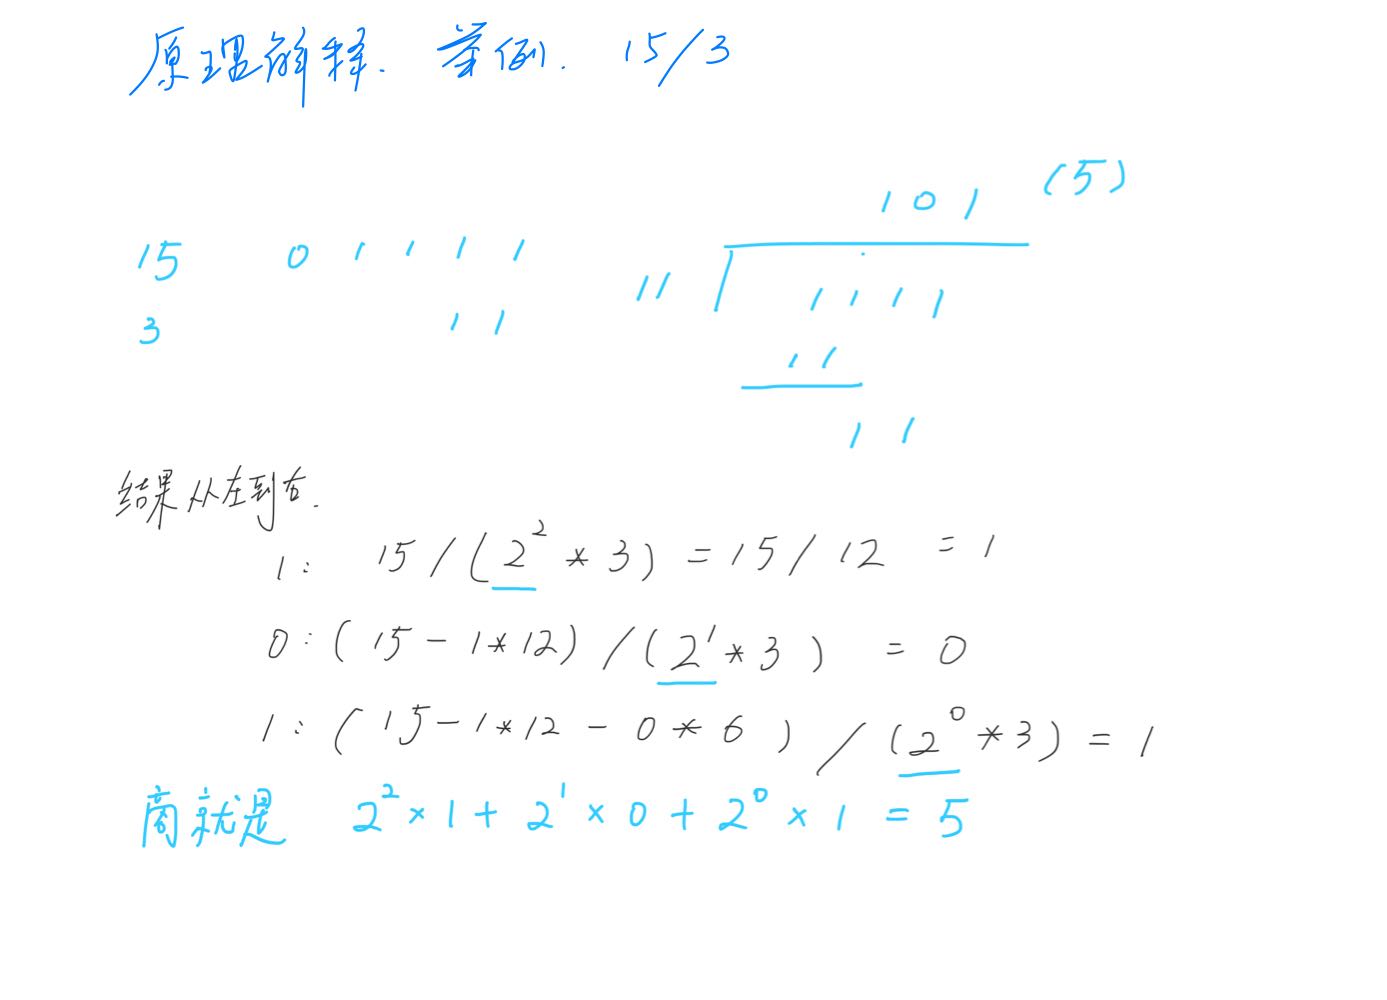 原理解释. 举例. 15/3
101 (5)
15 01111 11 1111
3 11 11
11
结果从左到右.
1: 15/(2²*3)=15/12=1
0:(15-1*12)/(2¹*3)=0
1:(15-1*12-0*6)/(2⁰*3)=1
商就是 2²×1+2¹×0+2⁰×1=5